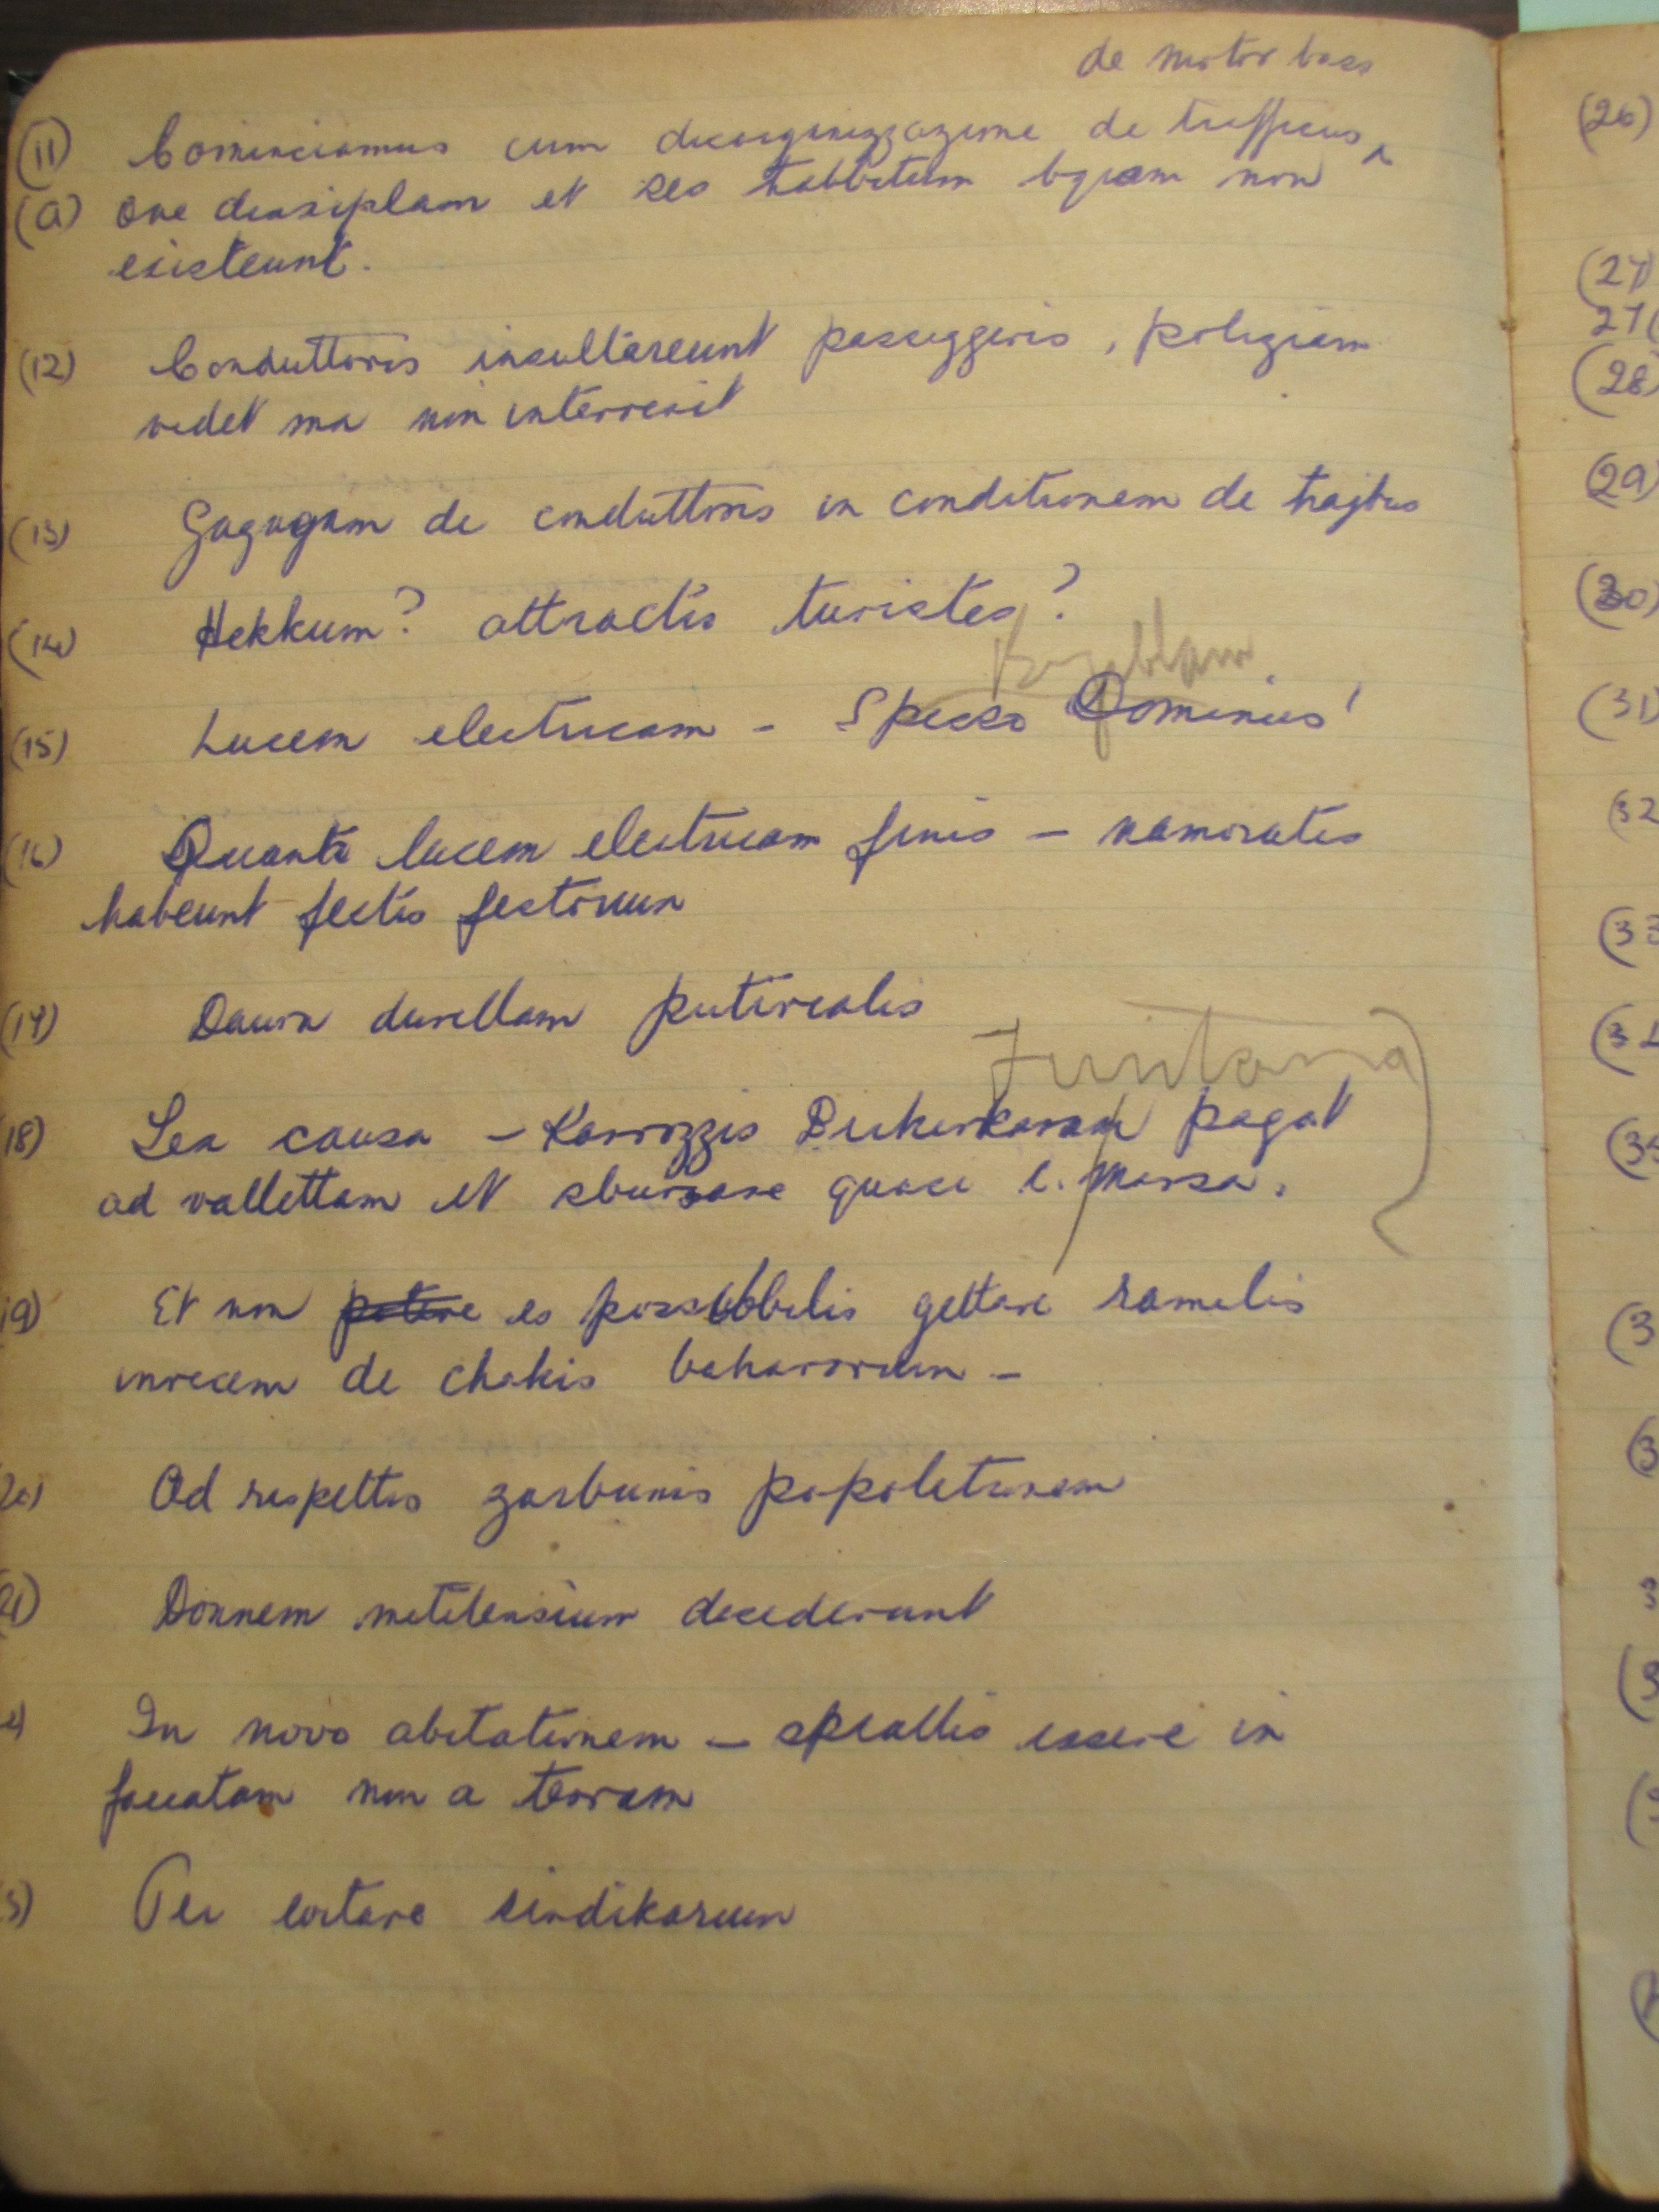 de motor bass
(11) Cominciamus cum disorganizzazione de trafficus ^
(a) ove dixxiplam et res habbitam bqiam non
existeunt.
(12) Conduttoris insultareunt passiggeris, poliziam
videt ma non intervenit
(13) Gagagam de conduttoris in conditionem de trajbus
(14) Hekkum? attractis turistes?
(15) Lucem electricam - Spesso Dominus'
(16) Quanto lucem electricam finis - namoratis
habeunt festis festorum
(17) Daura durellam putirialis
Funtana
18) Sea causa - Karrozzis Birkirkaram pagat
ad vallettam et sbarsare quasi l. Marsa.
19) Et non potere es possibbilis gettare ramelis
invecem de chakis baharorum -
20) Ad respettis zarbunis popolationem
21) Donnem mitilensium decederunt
In novo abitationem - spiallis essere in
facciatam non a terram
3) Per evitare sindikarum
(26)
(27)
27(
(28)
(29)
(30)
(31)
(32
(33
(3
(35
(3
(3
3
(3